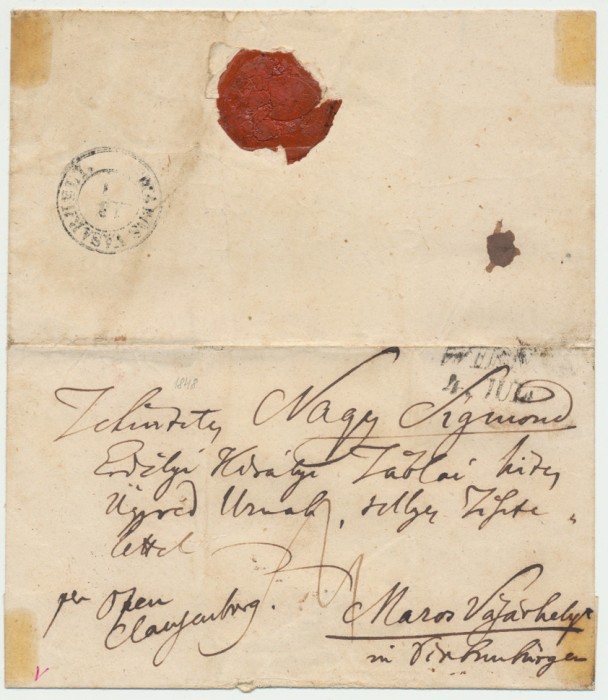 MAROS VÁSÁRHELY
4. JUL.
1848
Nagy Sigmond
Erdélyi Királyi Táblai hites
Ügyvéd Urnak, teljes Tiszte„
lettel
per Ofen
Clausenburg.
Maros Vásárhely
in Siebenbürgen